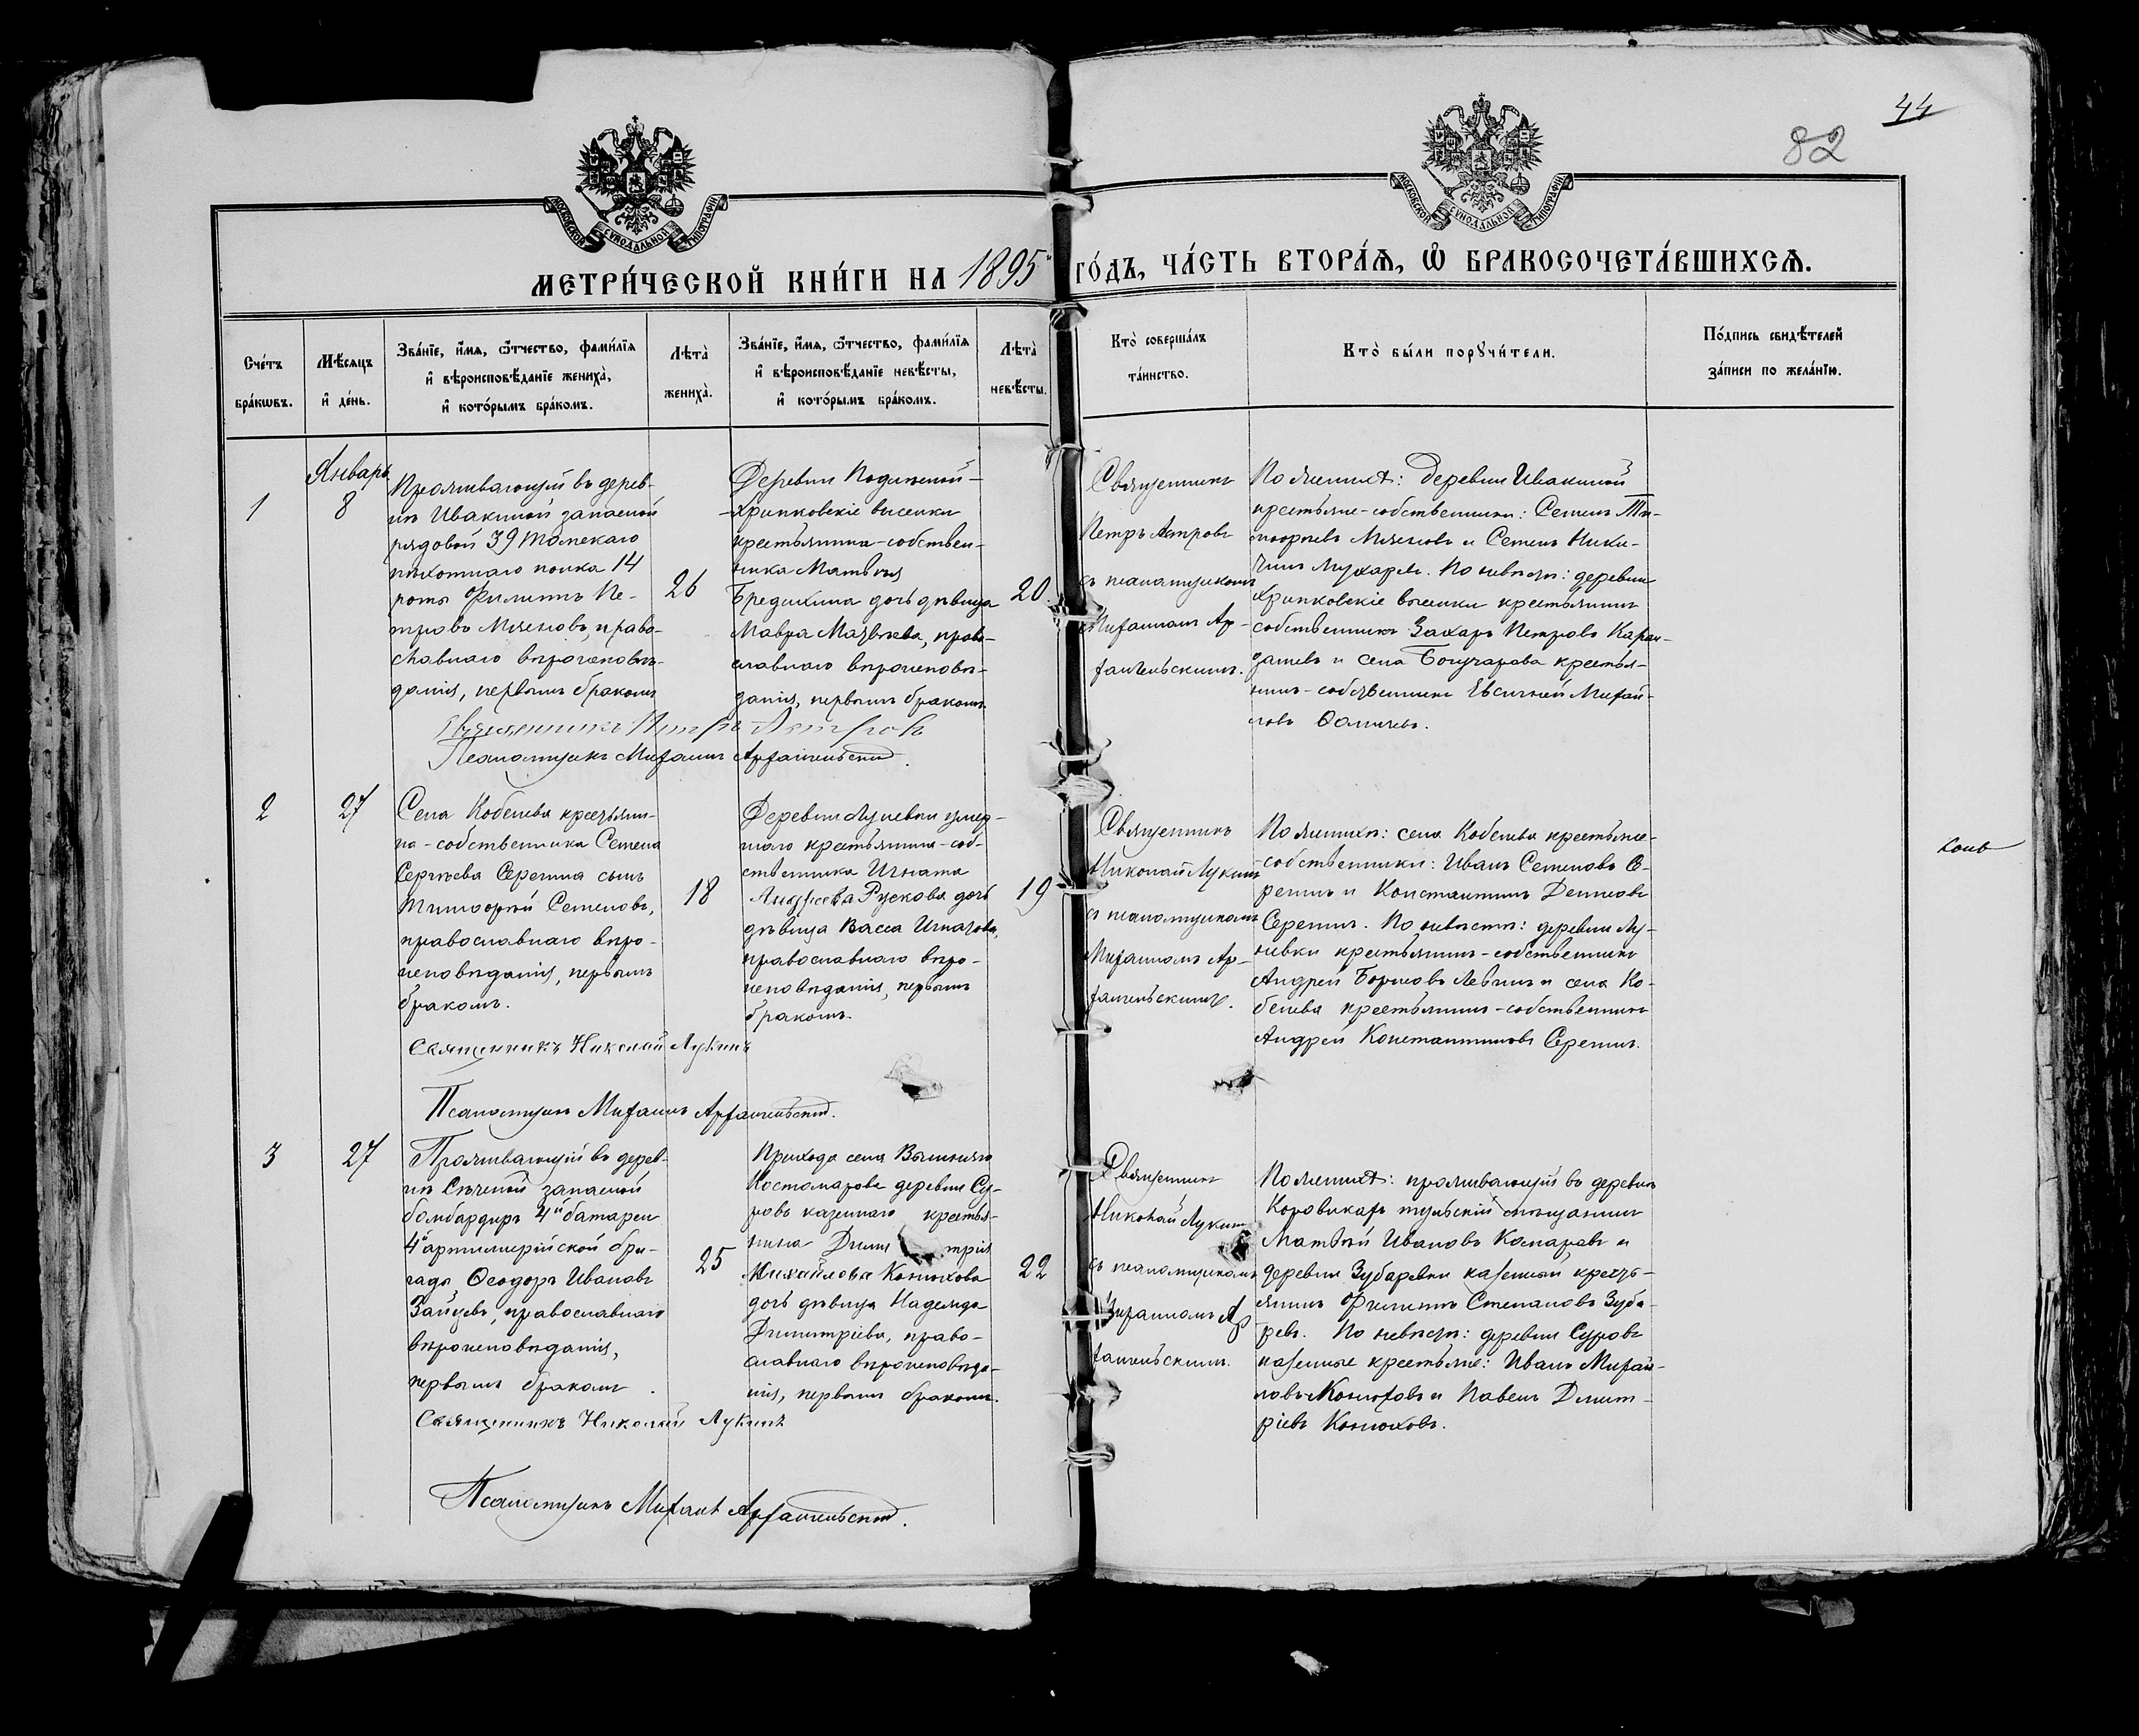 44
82
МОСКОВСКОЙ СѴНОДАЛЬНОЙ ТИПОГРАФІИ
МОСКОВСКОЙ СѴНОДАЛЬНОЙ ТИПОГРАФІИ
МЕТРИ́ЧЕСКОЙ КНИ́ГИ НА 1895 ГО́ДЪ, ЧА́СТЬ ВТОРА́Ѧ, Ѽ БРАКОСОЧЕТА́ВШИХСѦ.
Сче́тъ
бра́кѡвъ.
Мѣ́сяцъ
и҆ де́нь.
Зва́нїе, и҆́мѧ, ѻ҆́тчество, фами́лїѧ
и҆ вѣроисповѣ́данїе жениха̀,
и҆ кото́рымъ бра́комъ.
Лѣта̀
жениха̀.
Зва́нїе, и҆́мѧ, ѻ҆́тчество, фами́лїѧ
и҆ вѣроисповѣ́данїе невѣ́сты,
и҆ кото́рымъ бра́комъ.
Лѣта̀
невѣ́сты.
Кто̀ соверша́лъ
та́инство.
Кто̀ бы́ли порꙋчи́тели.
По́дпись свидѣ́телей
за́писи по жела́нїю.
1
Январь
8
Проживающій въ дерев-
нѣ Ивакиной запасной
рядовой 39 Томскаго
пѣхотнаго полка 14
роты Филиппъ Пе-
тровъ Мяеновъ, право-
славнаго вѣроисповѣ-
данія, первымъ бракомъ
26
Деревни
-Хрипковскіе выселки
крестьянина-собствен-
ника Матвѣя
Бредихина дочь дѣвица
Мавра Матвѣева, право-
славнаго вѣроисповѣ-
данія, первымъ бракомъ
20.
Священникъ
Петръ Астровъ
съ псаломщикомъ
Михаиломъ Ар-
хангельскимъ.
По женихѣ: деревни Ивакиной
крестьяне-собственники: Семенъ Ти-
моѳеевъ Мяеновъ и Семенъ Ники-
тинъ Мухаревъ. По невѣстѣ: деревни
Хрипковскіе выселки крестьянинъ
собственникъ Захаръ Петровъ Каран-
дашевъ и села Богучарова крестья-
нинъ-собственникъ Евсигней Михай-
ловъ Ѳомичевъ.
Священникъ Петръ Астровъ
Псаломщикъ Михаилъ Архангельскій.
2
27
Села Кобелева крестьяни-
на-собственника Семена
Сергѣева Серегина сынъ
Тимоѳей Семеновъ,
православнаго вѣро-
исповѣданія, первымъ
бракомъ.
18
Деревни Луневки умер-
шаго крестьянина-соб-
ственника Игната
Андреева Рускова дочь
дѣвица Васса Игнатова,
православнаго вѣро-
исповѣданія, первымъ
бракомъ.
19
Священникъ
Николай Лукинъ
съ псаломщикомъ
Михаиломъ Ар-
хангельскимъ.
По женихѣ: села Кобелева крестьяне-
-собственники: Иванъ Семеновъ Се-
регинъ и Константинъ Денисовъ
Серегинъ. По невѣстѣ: деревни Лу-
невки крестьянинъ-собственникъ
Андрей Борисовъ Левинъ и села Ко-
белева крестьянинъ-собственникъ
Андрей Константиновъ Серегинъ.
Священникъ Николай Лукинъ
Псаломщикъ Михаилъ Архангельскій.
3
27
Проживающій въ дерев-
нѣ Сѣченой запасной
бомбардиръ 4й батареи
4й артиллерійской бри-
гады Ѳеодоръ Ивановъ
Зайцевъ, православнаго
вѣроисповѣданія,
первымъ бракомъ.
25
Прихода села Вышняго
Костомарова деревни Су-
ровъ казеннаго крестья-
нина Дими трія
Михайлова Конюхова
дочь дѣвица Надежда
Димитріева, право-
славнаго вѣроисповѣда-
нія, первымъ бракомъ.
22
Священникъ
Николай Лукинъ
съ псаломщикомъ
Михаиломъ Ар-
хангельскимъ.
По женихѣ: проживающій въ деревнѣ
Коровикахъ тульскій мѣщанинъ
Матвѣй Ивановъ Комаровъ и
деревни Зубаревки казенный кресть-
янинъ Филиппъ Степановъ Зуба-
ревъ. По невѣстѣ: деревни Суровъ
казенные крестьяне: Иванъ Михай-
ловъ Конюховъ и Павелъ Дмит-
ріевъ Конюховъ.
Священникъ Николай Лукинъ
Псаломщикъ Михаилъ Архангельскій.